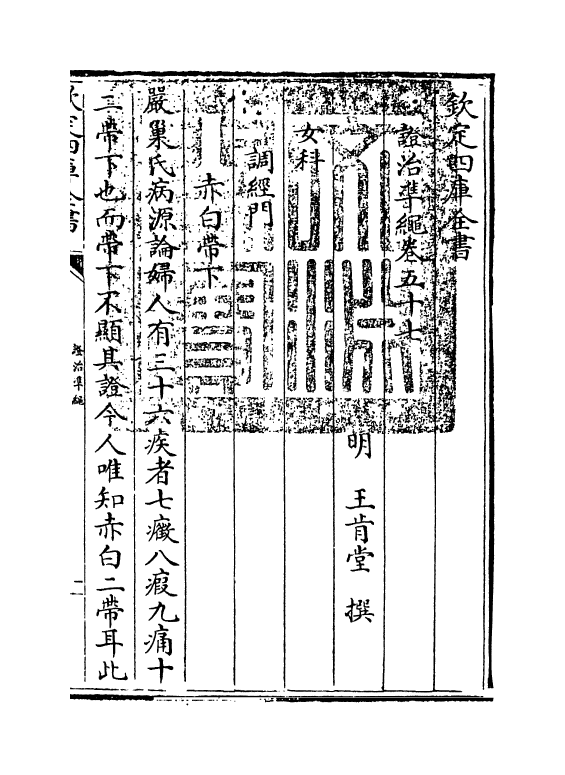 欽定四庫全書
證治凖繩卷五十七
明 王肯堂 撰
女科
調經門
赤白帶下
嚴巢氏病源論婦人有三十六疾者七癥八瘕九痛十
二帶下也而帶下不顯其證今人唯知赤白二帶耳此
欽定四庫全書
證治凖繩